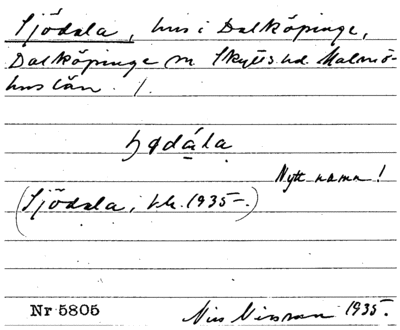 Sjödala, hus i Dalköpinge,
Dalköpinge sn Skytts hd. Malmö-
hus län. /.
Nytt namn!
(Sjödala, i bl. 1935-.)
Nr 5805 Nils Nilsson 1935.